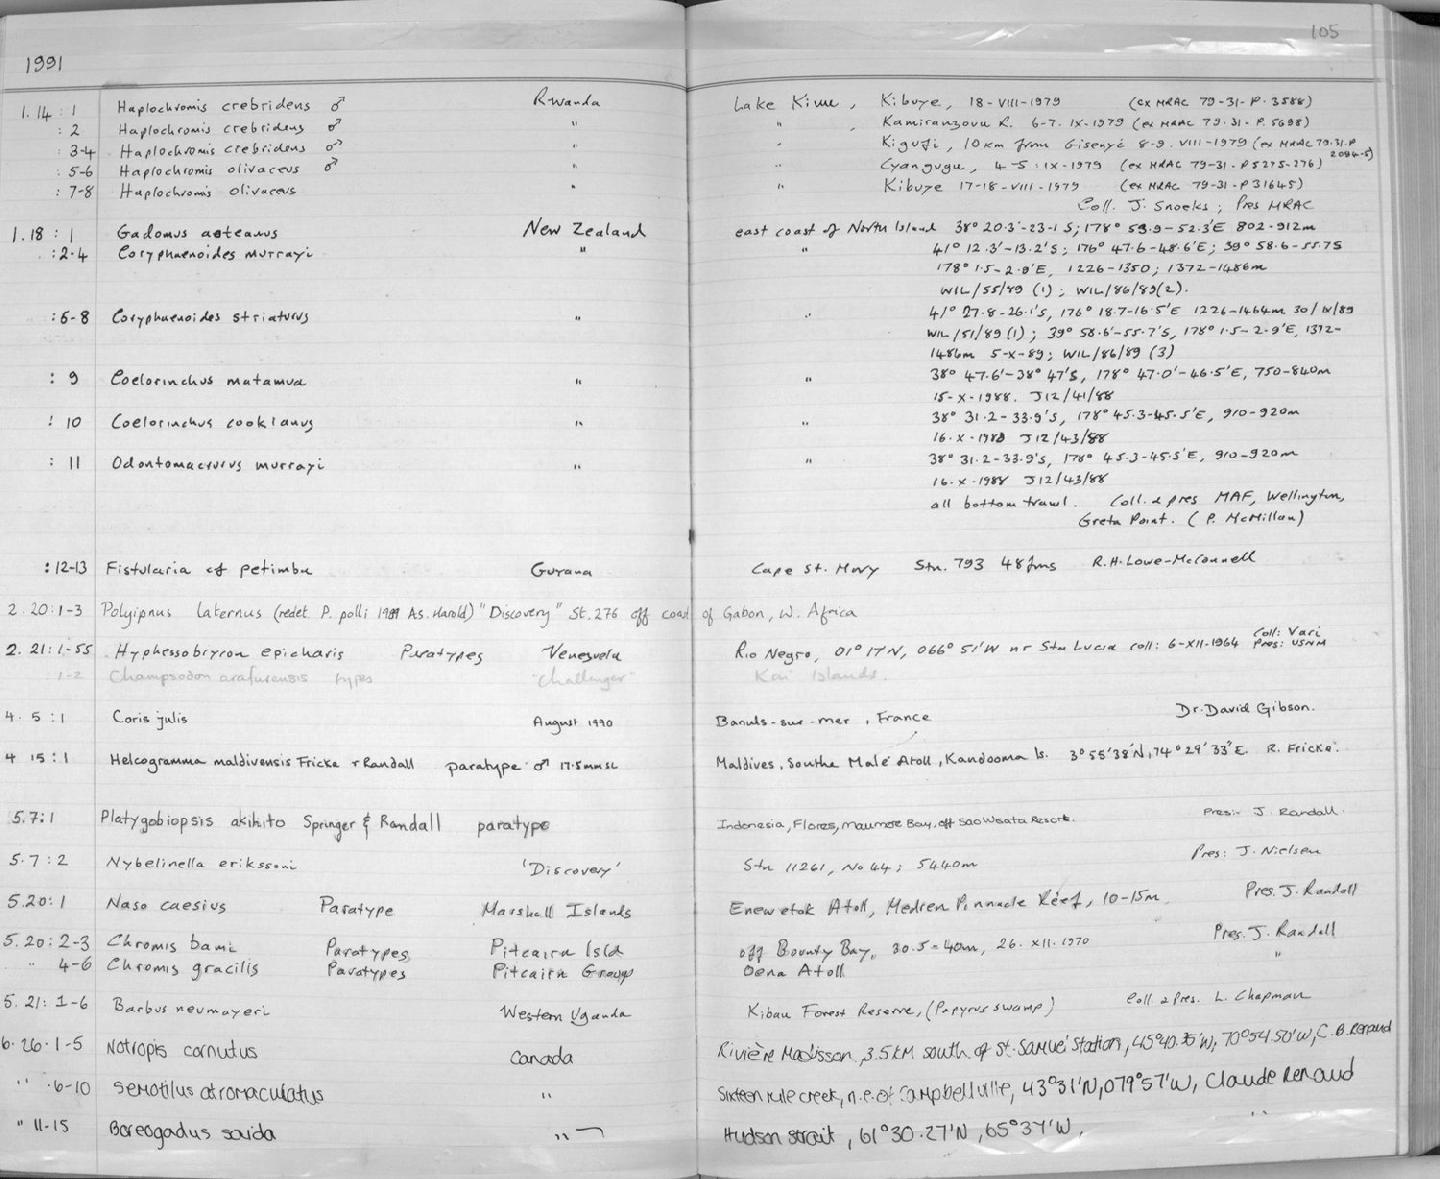 105
1991
1.14 : 1 Haplochromis crebridens ♂ Rwanda Lake Kivu, Kibuye, 18-VIII-1979 (ex MRAC 79-31-P.3588)
: 2 Haplochromis crebridens ♂ " " , Kamiranzovu R. 6-7.IX-1979 (ex MRAC 79.31-P.5698)
: 3-4 Haplochromis crebridens ♂ " " Kigufi, 10km from Gisenyé 8-9.VIII-1979 (ex MRAC 79.31.P
2094-5)
: 5-6 Haplochromis olivaceus ♂ " " Cyangugu, 4-5:IX-1979 (ex MRAC 79-31-P5275-276)
: 7-8 Haplochromis olivaceus " " Kibuye 17-18-VIII-1979 (ex MRAC 79-31-P31645)
Coll. J. Snoeks; Pres MRAC
1.18 : 1 Gadomus aoteanus New Zealand east coast of North Island 38° 20.3'-23-1 S; 178° 53.9-52.3'E 802-912m
: 2-4 Coryphaenoides murrayi " " 41° 12.3'-13.2'S; 176° 47.6-48.6'E; 39° 58.6-55.7S
178° 1.5-2.9'E, 1226-1350; 1372-1486m
WIL/55/89 (1); WIL/86/89(2).
: 5-8 Coryphaenoides striaturus " " 41° 27.8-26.1'S, 176° 18.7-16.5'E 1226-1464m 30/IX/89
WIL/51/89 (1); 39° 58.6'-55.7'S, 178° 1.5-2.9'E, 1372-
1486m 5-X-89; WIL/86/89 (3)
: 9 Coelorinchus matamua " " 38° 47.6'-38° 47'S, 178° 47.0'-46.5'E, 750-840m
15-X-1988. J12/41/88
: 10 Coelorinchus cookianus " " 38° 31.2-33.9'S, 178° 45.3-45.5'E, 910-920m
16-X-1988 J12/43/88
: 11 Odontomacrurus murrayi " " 38° 31.2-33.9'S, 178° 45.3-45.5'E, 910-920m
16-X-1988 J12/43/88
all bottom trawl. Coll. & pres MAF, Wellington,
Greta Point. (P. McMillan)
: 12-13 Fistularia cf petimba Guyana Cape St. Mary Stn. 793 48fms R.H. Lowe-McConnell
2.20:1-3 Polyipnus laternus (redet. P. polli 1989 A.S. Harold) "Discovery" St.276 off coast of Gabon, W. Africa
2.21:1-55 Hyphessobrycon epicharis Paratypes Venezuela Rio Negro, 01° 17'N, 066° 51'W nr Sta Lucia coll: 6-XII-1984 Coll: Vari
Pres: USNM
1-2 Champsodon arafurensis types "Challenger" Kai Islands.
4.5:1 Coris julis August 1990 Banuls-sur-mer, France Dr. David Gibson.
4 15:1 Helcogramma maldivensis Fricke & Randall paratype ♂ 17.5mm SL Maldives, Southe Malé Atoll, Kandooma Is. 3°55'38"N, 74°29'33"E. R. Fricke.
5.7:1 Platygobiopsis akihito Springer & Randall paratype Indonesia, Flores, Maumere Bay, off Sao Wisata Resort. Pres:- J. Randall.
5.7:2 Nybelinella erikssoni 'Discovery' Stn 11261, No 44; 5440m Pres: J. Nielsen
5.20:1 Naso caesius Paratype Marshall Islands Enewetok Atoll, Medren Pinnacle Reef, 10-15m. Pres. J. Randall
5.20:2-3 Chromis bami Paratypes Pitcairn Isld off Bounty Bay, 30.5-40m, 26.XII.1970 Pres. J. Randall
" 4-6 Chromis gracilis Paratypes Pitcairn Group Oena Atoll "
5.21:1-6 Barbus neumayeri Western Uganda Kibau Forest Reserve, (Papyrus swamp) Coll & Pres. L. Chapman
6.26.1-5 Notropis cornutus Canada Rivière Madisson, 3.5KM south of St-Samuel Station, 45°40.35'W, 70°54.50'W, C.B. Renaud
" .6-10 Semotilus atromaculatus " Sixteen mile creek, n.e. of Campbellville, 43°31'N, 079°57'W, Claude Renaud
" 11-15 Boreogadus saida " Hudson strait, 61°30.27'N, 65°37'W, "